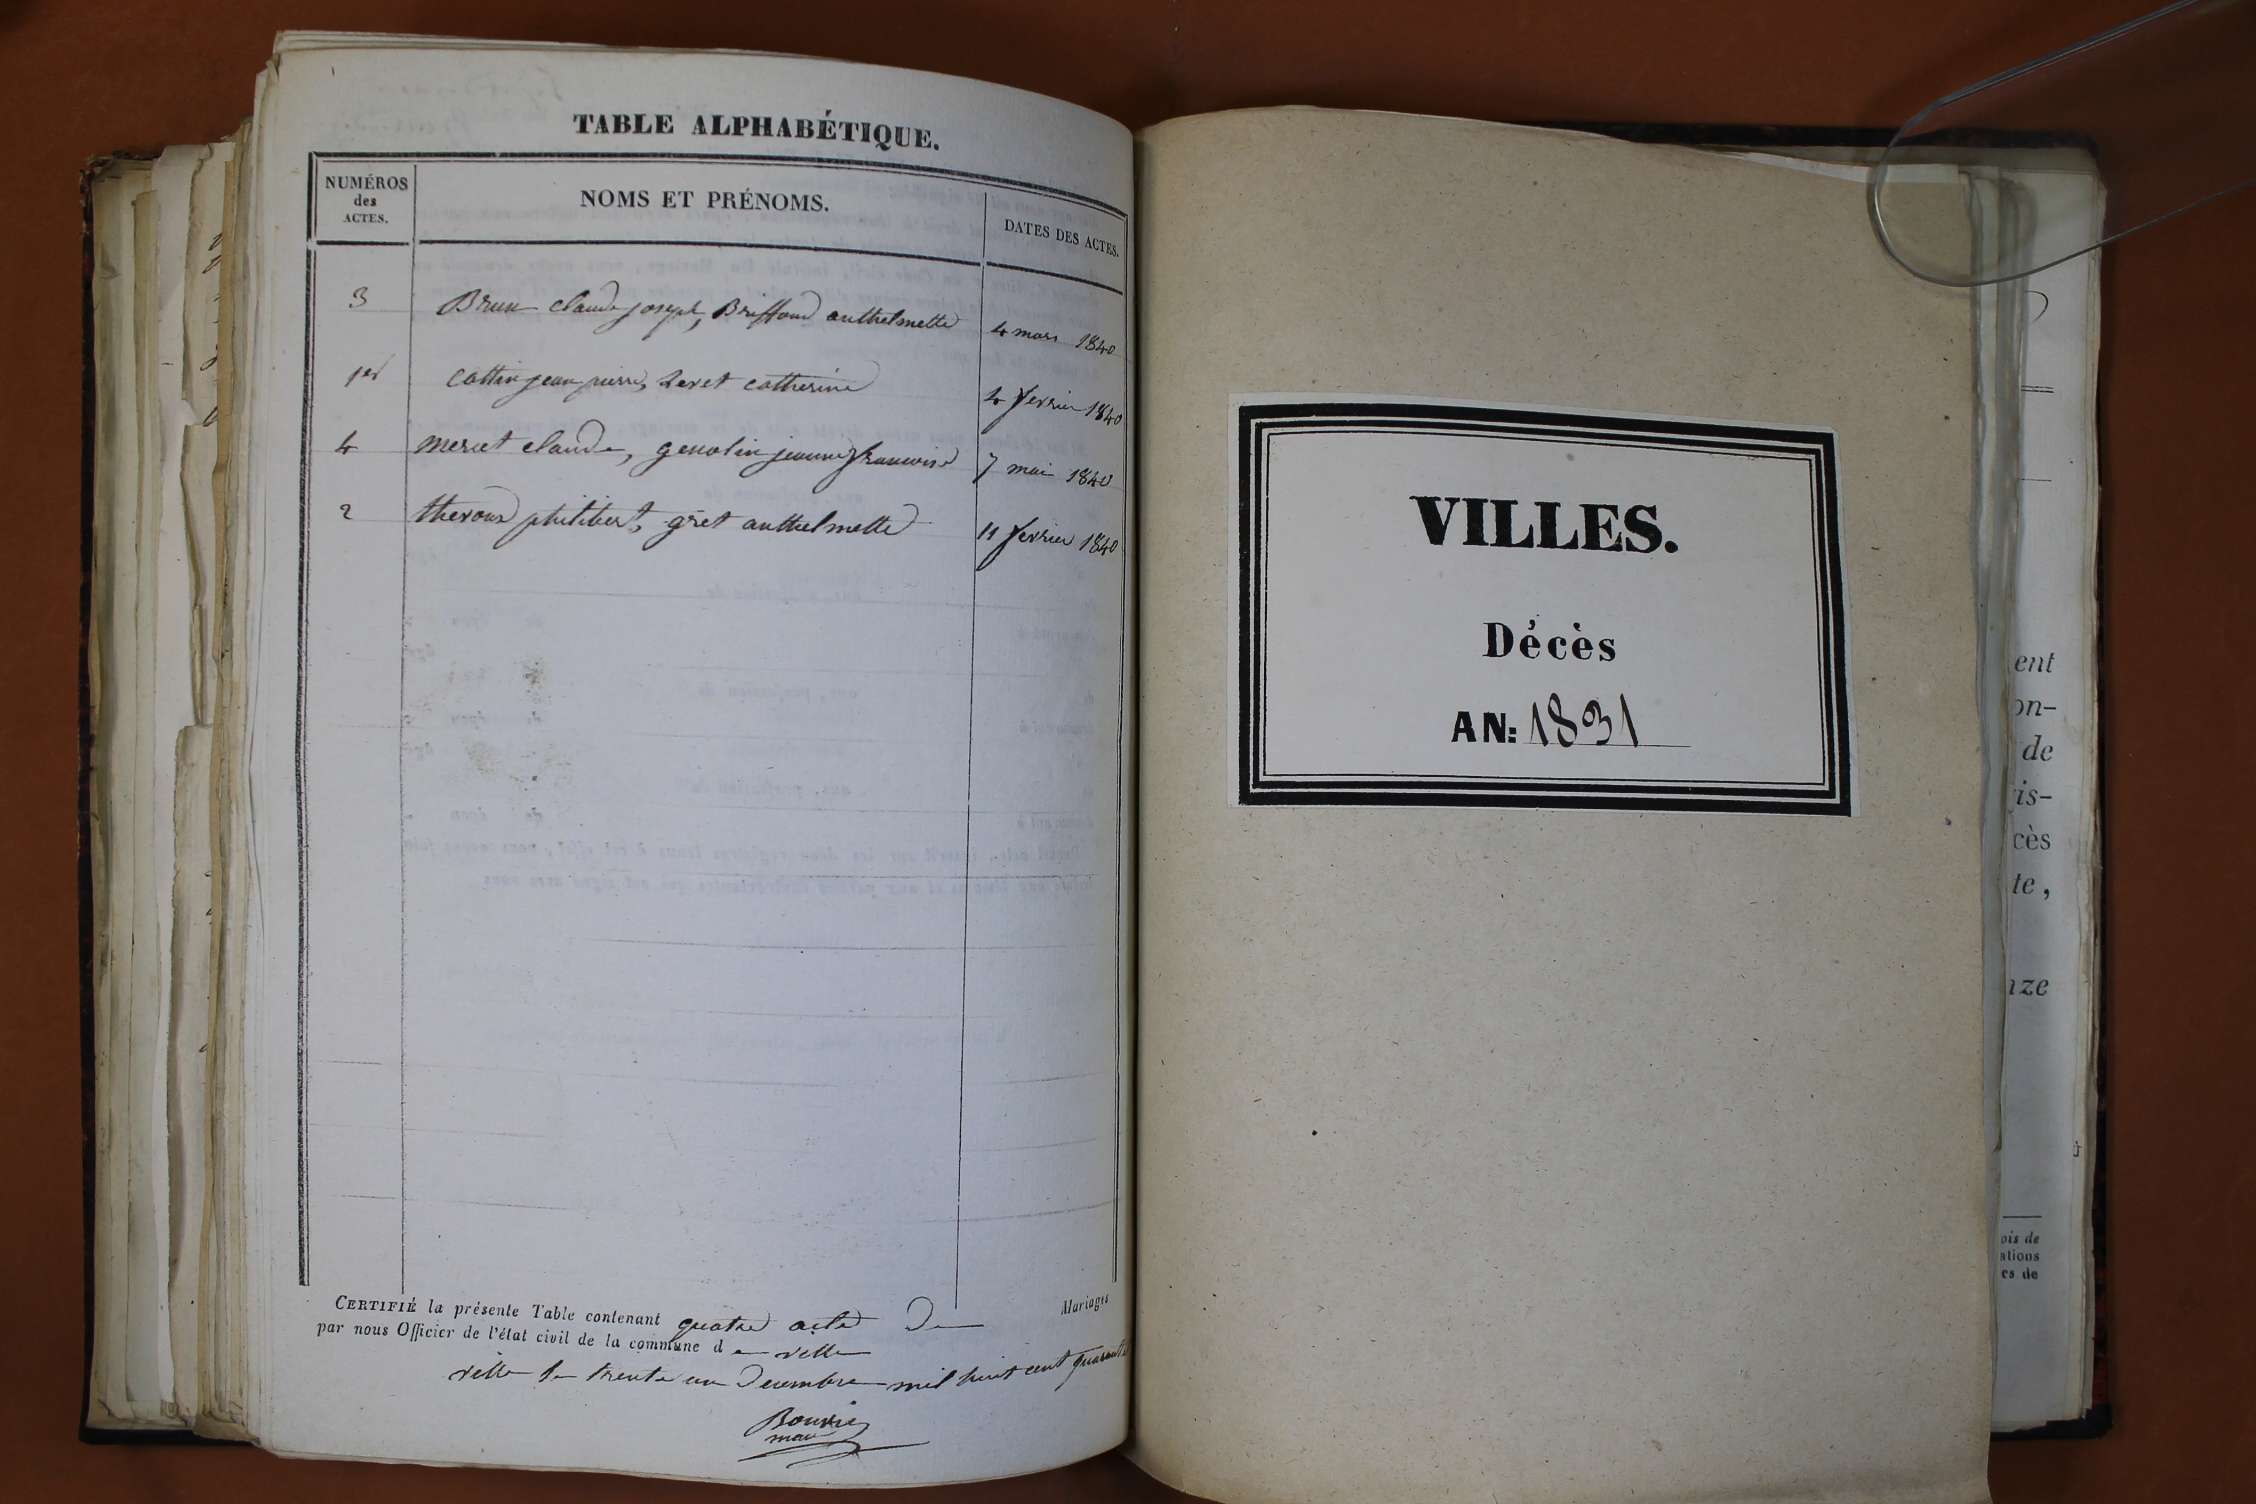 TABLE ALPHABÉTIQUE.
NUMÉROS
des
ACTES.
NOMS ET PRÉNOMS.
DATES DES ACTES.
3 Brun claude joseph, Briffond anthelmette 4 mars 1840
1er Cottin jean pierre, Levet catherine 4 fevrier 1840
4 mercet claude, genolin jeanne francoise 7 mai 1840
2 theroux philibert, gret anthelmette 11 fevrier 1840
CERTIFIÉ la présente Table contenant quatre acte De Mariages
par nous Officier de l'état civil de la commune de ville
ville le trente un Decembre mil huit cent quarante
Bouvie
VILLES.
Décès
AN: 1831
ent
on-
de
is-
cès
te,
nze
ois de
ations
es de